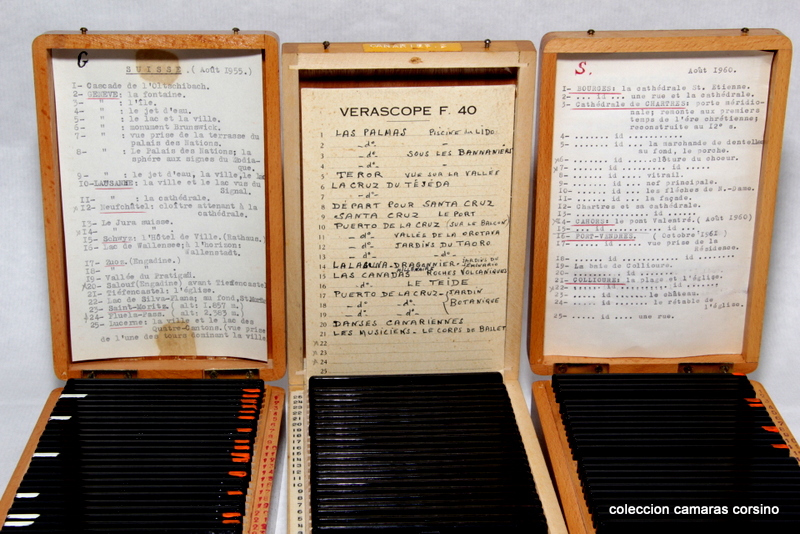 G
SUISSE.(Août 1955.)
1- Cascade de l'Oltschibach.
2- GENEVE: la fontaine.
3- " : l'île.
4- " : le jet d'eau.
5- " : le lac et la ville.
6- " : monument Brunswick.
7- " : vue prise de la terrasse du
palais des Nations.
8- " : Le Palais des Nations; la
sphère aux signes du Zodia-
que.
9- " : le jet d'eau, la ville, le lac
10-LAUSANNE: la ville et le lac vus du
Signal.
11- " : la cathédrale.
12- Neufchâtel: cloître attenant à la
cathédrale.
13- Le Jura suisse.
14- " "
15- Schwyz: l'Hôtel de Ville.(Rathaus.)
16- Lac de Wallensee; à l'horizon:
Wallenstadt.
17- (Engadine.)
18- " "
19- Vallée du
20- Salouf(Engadine) avant Tiefencastel
21- Tiefencastel: l'église.
22- Lac de Silva-Plana; au fond,
23- Saint-Moritz ( alt: 1.857
24- Fluela-Pass. ( alt: 2.383 m.)
25- Lucerne: la ville et le lac des
Quatre-Cantons.(vue prise
de l'une des tours dominant la ville
CANARIES 2
VERASCOPE F. 40
1 LAS PALMAS PISCINE LIDO
2 - d° -
3 - d° - SOUS LES BANNANIERS
4 - d° -
5 TEROR VUE SUR LA VALLÉE
6 LA CRUZ DU TEJEDA
7 - d° -
8 DÉPART POUR SANTA CRUZ
9 SANTA CRUZ LE PORT
10 PUERTO DE LA CRUZ (SUR LE BALCON)
11 - d° - VALLÉE DE LA OROTAVA
12 - d° - JARDINS DU TAORO
13 - d° - - d° -
14 LA LAGUNA - DRAGONNIER MILLENAIRE JARDINS DU SEMINAIRE
15 LAS CANADAS ROCHES VOLCANIQUES
16 - d° - LE TEIDE
17 PUERTO DE LA CRUZ - JARDIN
18 - d° - - d° - BOTANIQUE
19 - d° - - d° -
20 DANSES CANARIENNES
21 LES MUSICIENS - LE CORPS DE BALLET
22
23
24
25
S.
Août 1960.
1- BOURGES: la cathédrale St. Etienne.
2- ... id ... une rue et la cathédrale.
3- Cathédrale de CHARTRES: porte méridio-
nale; remonte aux premiers
temps de l'ère chrétienne;
reconstruite au 12° s.
4- ...... id ....
5- ...... id ... la marchande de dentelles
au fond, le porche.
6- ...... id ...clôture du choeur.
7- ...... id ......... id ......
8- ...... id .... vitrail.
9- ...... id ... nef principale.
10- ..... id ... les flèches de N.-Dame.
11- ..... id ... la façade.
12- Chartres et sa cathédrale.
13- ..... id ....... id ....
14- CAHORS: le pont Valentré.(Août 1960)
15- ... id ......... id ....
16- PORT-VENDRES. ( Octobre 1961)
17- ..... id ..... vue prise de la
Résidence.
18- ..... id ....... id ....
19- La baie de Collioure.
20- ..... id ..... id ....
21- COLLIOURE: la place et l'église.
22- ..... id ....... id ......
23- ..... id .... le château.
24- id ... le retable de
l'église.
25- ..... id ... une rue.
coleccion camaras corsino